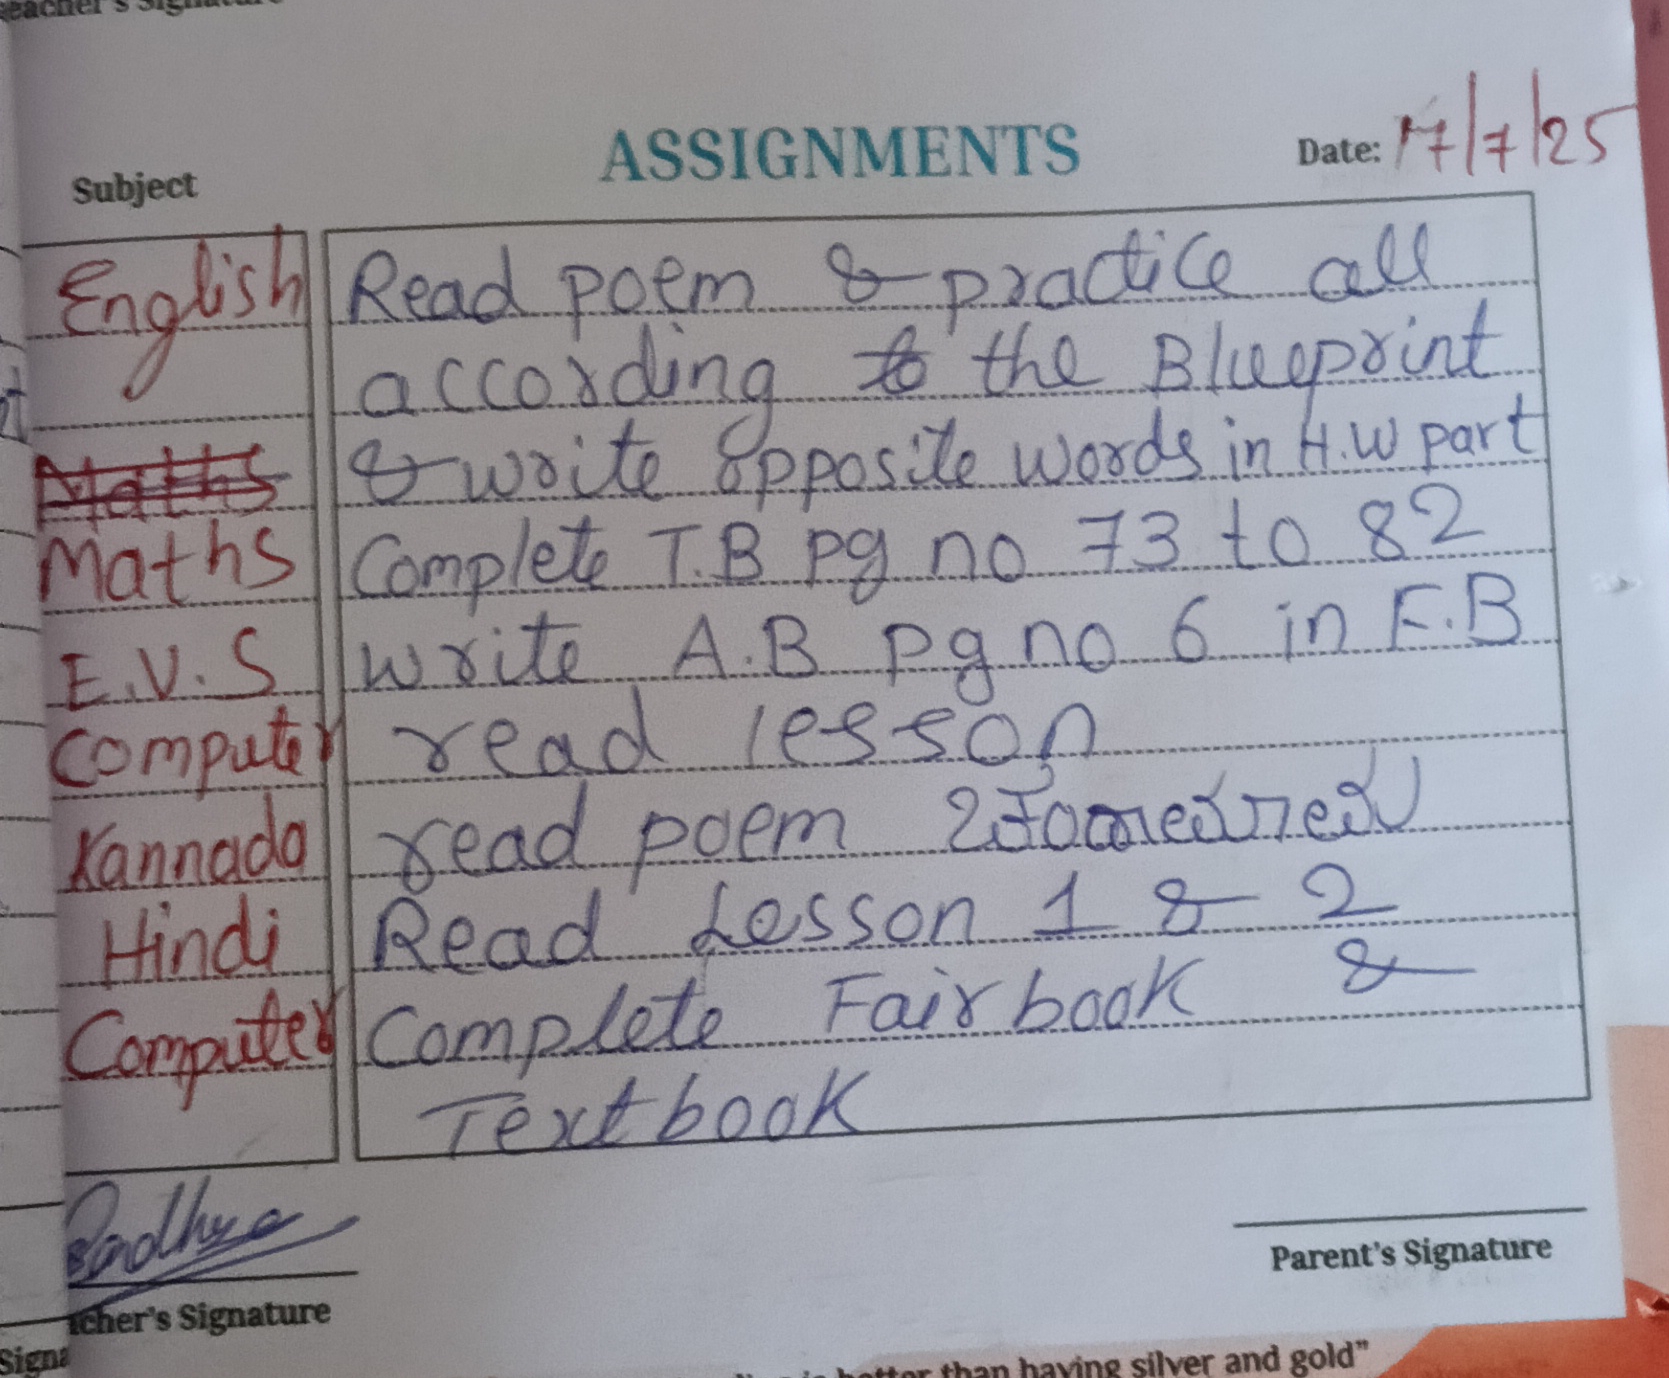 eacher's Signature
ASSIGNMENTS
Subject
Date: 17/7/25
English Read poem & practice all
according to the Blueprint
& write opposite words in H.W part
Maths
Maths Complete T.B pg no 73 to 82
E.V.S write A.B pg no 6 in F.B
Computer read lesson
Kannada read poem
Hindi Read Lesson 1 & 2
Computer Complete Fairbook &
Textbook
cher's Signature
Parent's Signature
Signa
better than having silver and gold"